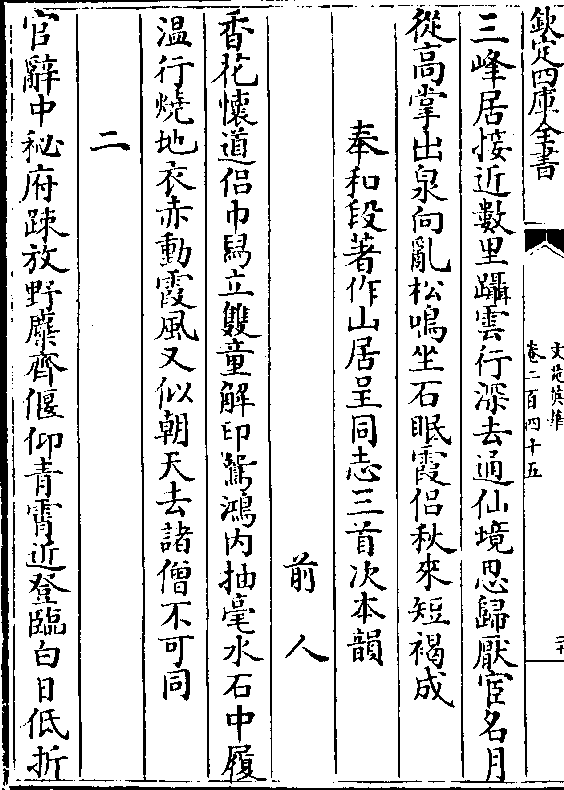 欽定四庫全書
文苑英華
卷二百四十五
三峰居接近數里躡雲行深去通仙境思歸厭宦名月
從高掌出泉向亂松鳴坐石眠霞侣秋來短褐成
奉和段著作山居呈同志三首次本韻
前人
香花懷道侣巾舄立雙童解印鴛鴻内抽毫水石中履
温行燒地衣赤動霞風又似朝天去諸僧不可同
二
官辭中秘府疎放野麋齊偃仰青霄近登臨白日低折